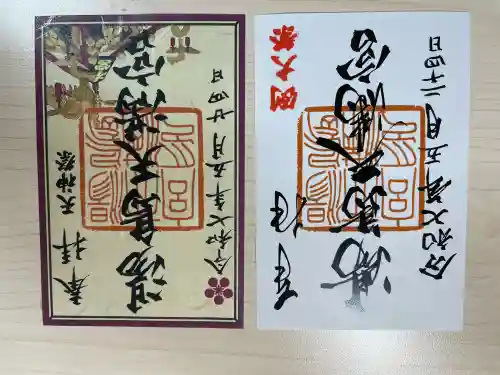 奉拝 天神祭
湯島天満宮
令和七年五月廿四日
奉拝 例大祭
湯島天満宮
令和七年五月二十四日